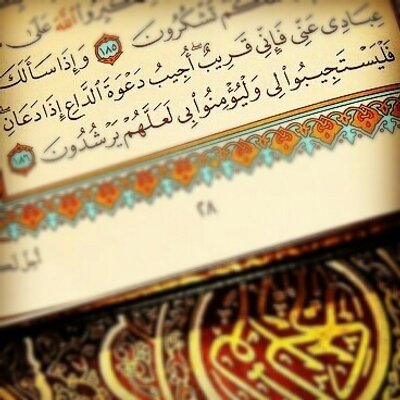 ٱللَّهَ عَلَىٰ
كُمْ تَشْكُرُونَ ١٨٥ وَإِذَا سَأَلَكَ
عِبَادِى عَنِّى فَإِنِّى قَرِيبٌ ۖ أُجِيبُ دَعْوَةَ ٱلدَّاعِ إِذَا دَعَانِ ۖ
فَلْيَسْتَجِيبُوا۟ لِى وَلْيُؤْمِنُوا۟ بِى لَعَلَّهُمْ يَرْشُدُونَ ١٨٦
٢٨